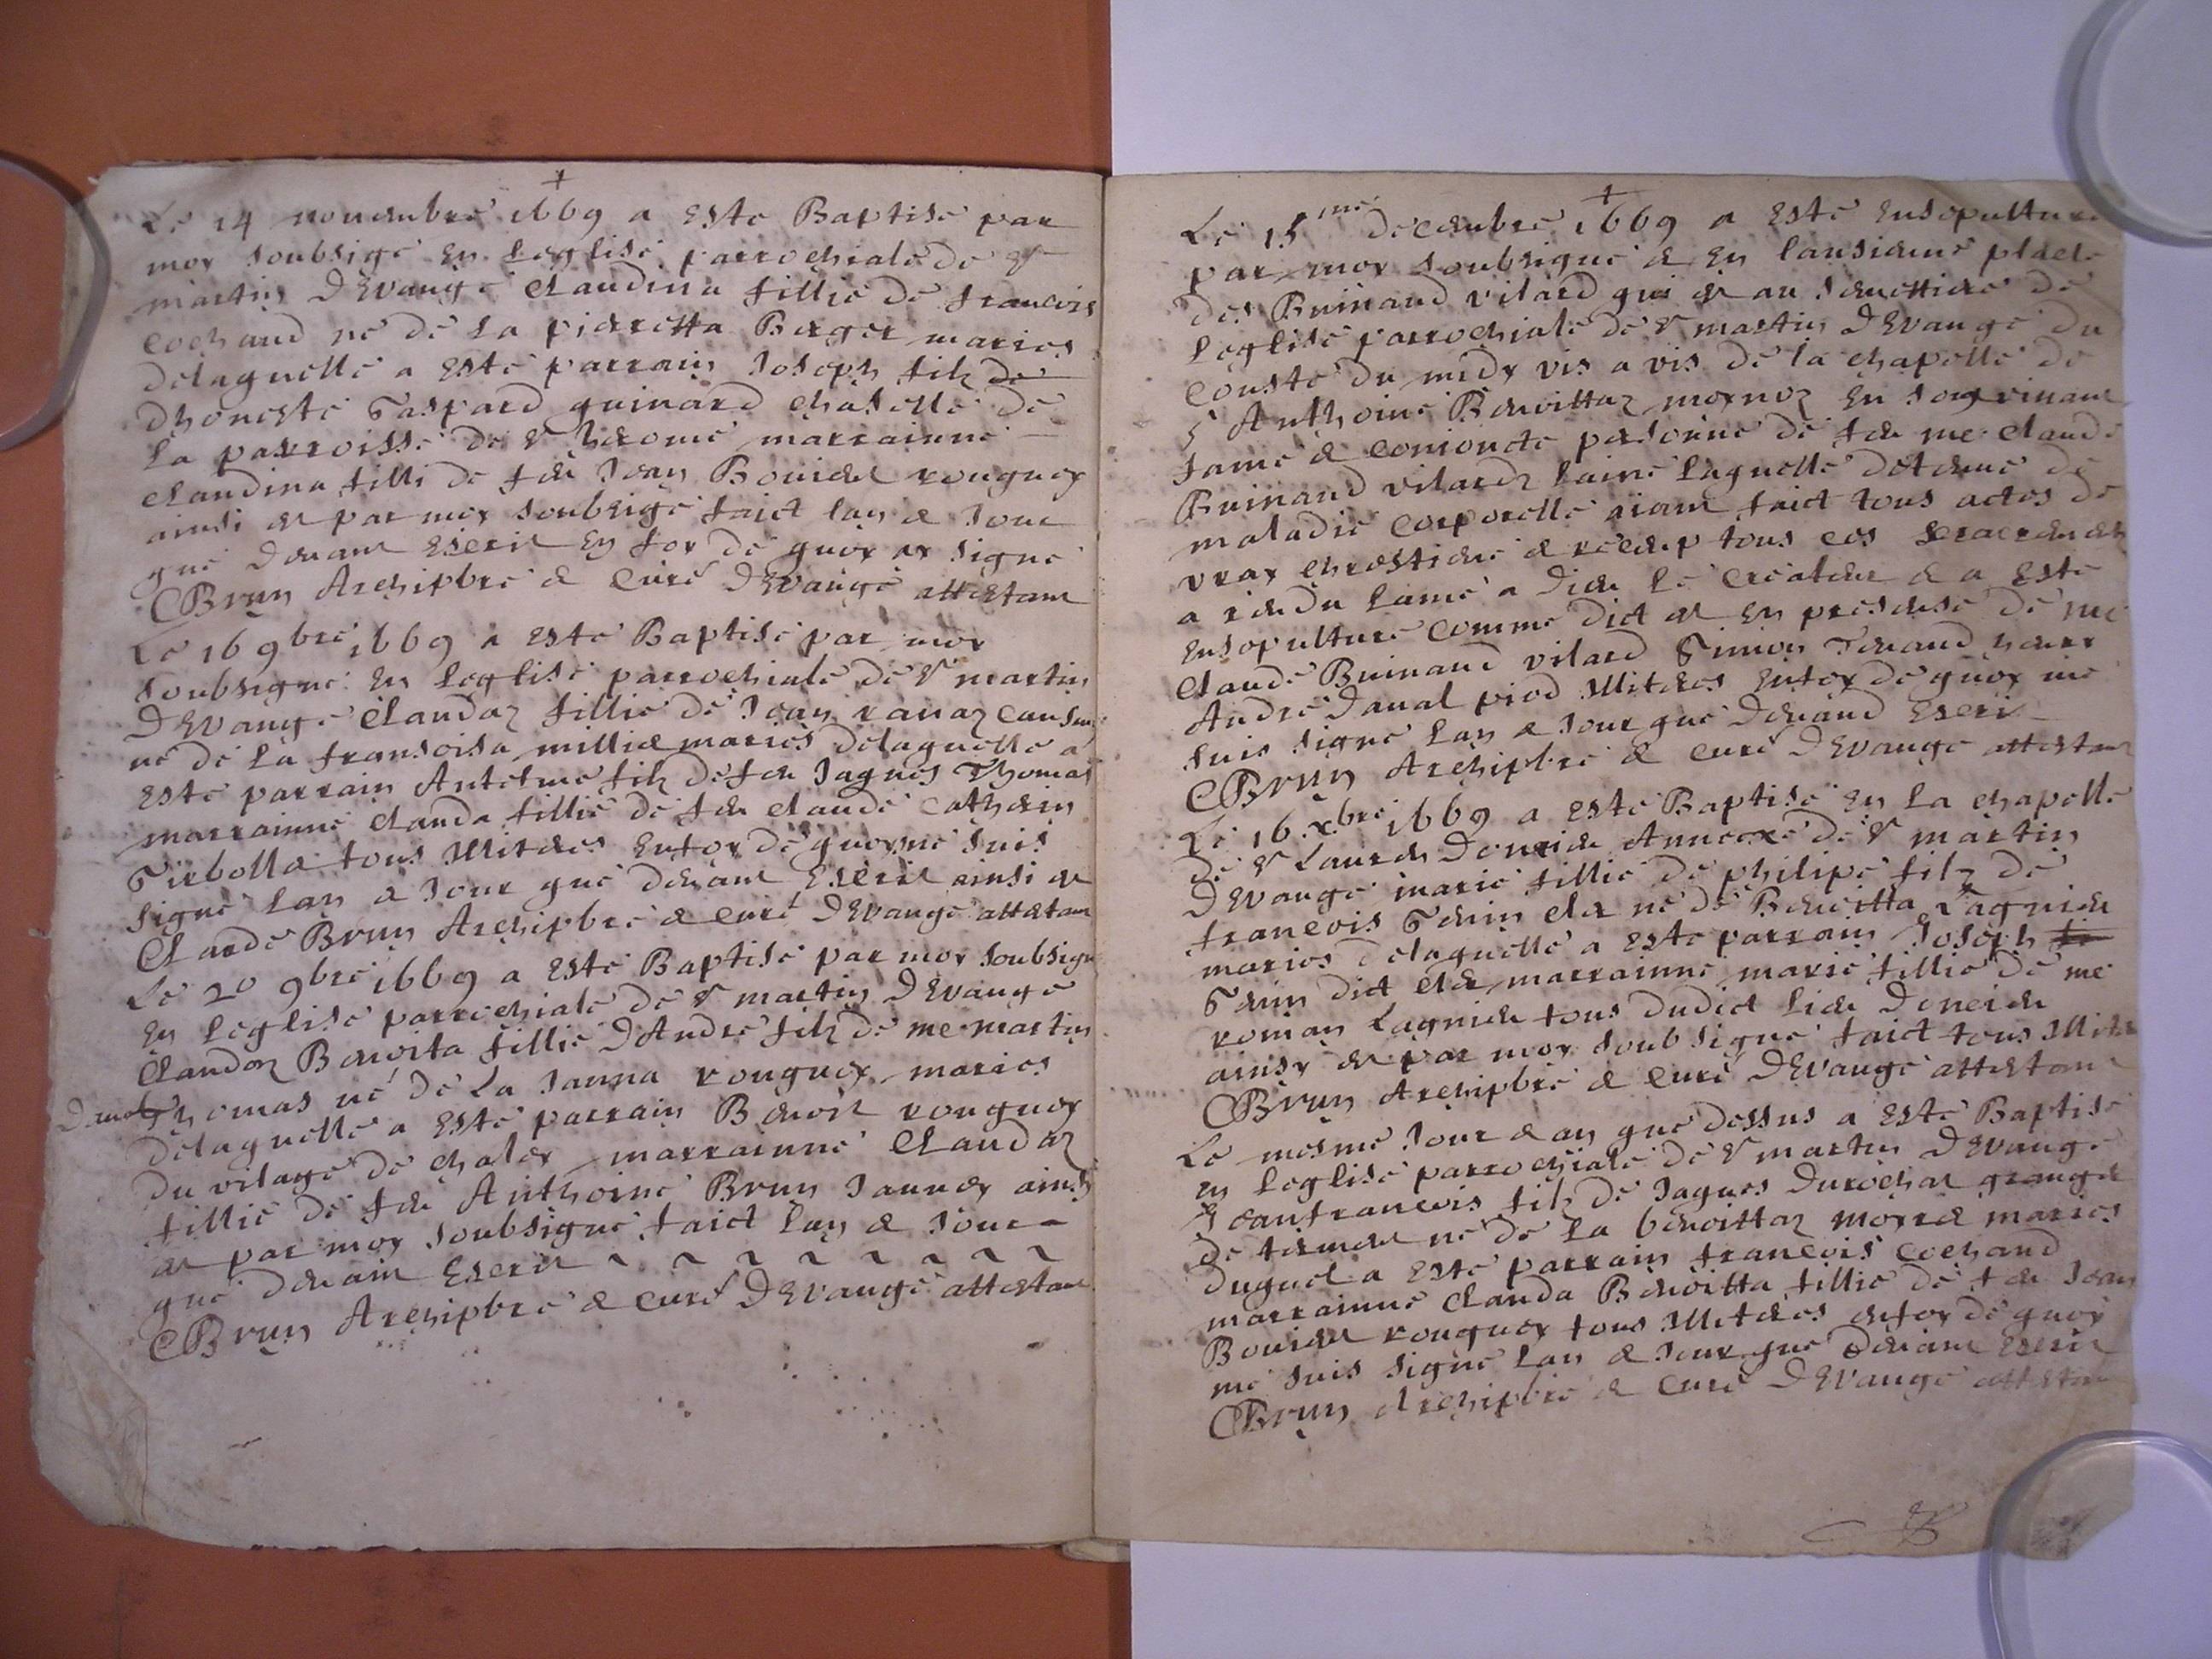 +
Le 14 nouembre 1669 a este Baptise par
moy soubsigé en leglise parrochiale de St
martin DEvange Claudina fillie de francois
cochand ne de la pierretta Berger maries
delaquelle a este parrain Joseph filz de
dhoneste Gaspard guinard de
la parroisse de St marrainne
Claudina filli de feu Jean Bouiet rouguey
ainsi est par moy soubsigé faict lan & Jour
que deuant escrit en foy de quoy ay signe
Brun Archipbre & Curé DEvange attestant
Le 16 9bre 1669 a este Baptise par moy
soubsigne en leglise parrochiale de St martin
DEvange Claudaz fillie de Jean
ne de la fransoisa maries delaquelle a
este parrain Antelme filz de feu Jaques Thomas
marrainne Clauda fillie de feu Claude
tous Illiteres en foy de quoy me suis
signe lan & Jour que deuant escrit ainsi est
Claude Brun Archipbre & Curé DEvange attestant
Le 20 9bre 1669 a este Baptise par moy soubsigne
en leglise parrochiale de St martin DEvange
Claudaz Benoita fillie DAndre filz de me martin
Thomas né de la Janna rouguey maries
delaquelle a este parrain Benoit rouguey
du vilage de chaley marrainne Claudaz
fillie de feu Anthoine Brun Janney ainsy
est par moy soubsigne faict lan & Jour
que deuant escrit ~ ~ ~ ~ ~ ~ ~ ~
Brun Archipbre & Curé DEvange attestant
+
Le 15me decembre 1669 a este ensepulture
par moy soubsigne & en lansienne place
des Buinand vilard qui est au semettiere de
leglise parrochiale de St martin DEvange du
couste du midy vis a vis de la chapelle de
St Anthoine Benoittaz en son vivant
fame & conioncte personne de feu me Claude
Buinand vilardz laine laquelle detenue de
maladie corporelle aiant faict tous actes de
vray chrestiene & receup tous ces
a rendu lame a dieu le createur & a este
ensepulture comme dict est en presense de me
Claude Buinand vilard
Andre piod Illiteres en foy de quoy me
suis signe lan & Jour que deuand escrit
Brun Archipbre & Curé DEvange attestant
Le 16 xbre 1669 a este Baptise en la chapelle
de St Laurent Donneieu Annexe de St martin
DEvange marie fillie de philipe filz de
francois ne de Benoitta Lagnieu
maries delaquelle a este parrain Joseph
dict marrainne marie fillie de me
roman Lagnieu tous dudict lieu Doneieu
ainsy est par moy soubsigne faict tous Illiteres
Brun Archipbre & Curé DEvange attestant
Le mesme Jour & an que dessus a este Baptise
en leglise parrochiale de St martin DEvange
Jean francois filz de Jaques Durochat granger
de ne de la benoittaz maries
duquel a este parrain francois cochand
marrainne Clauda Benoitta fillie de feu Jean
Bouiet rouguey tous Illiteres en foy de quoy
me suis signe lan & Jour que deuant escrit
Brun Archipbre & Curé DEvange attestant